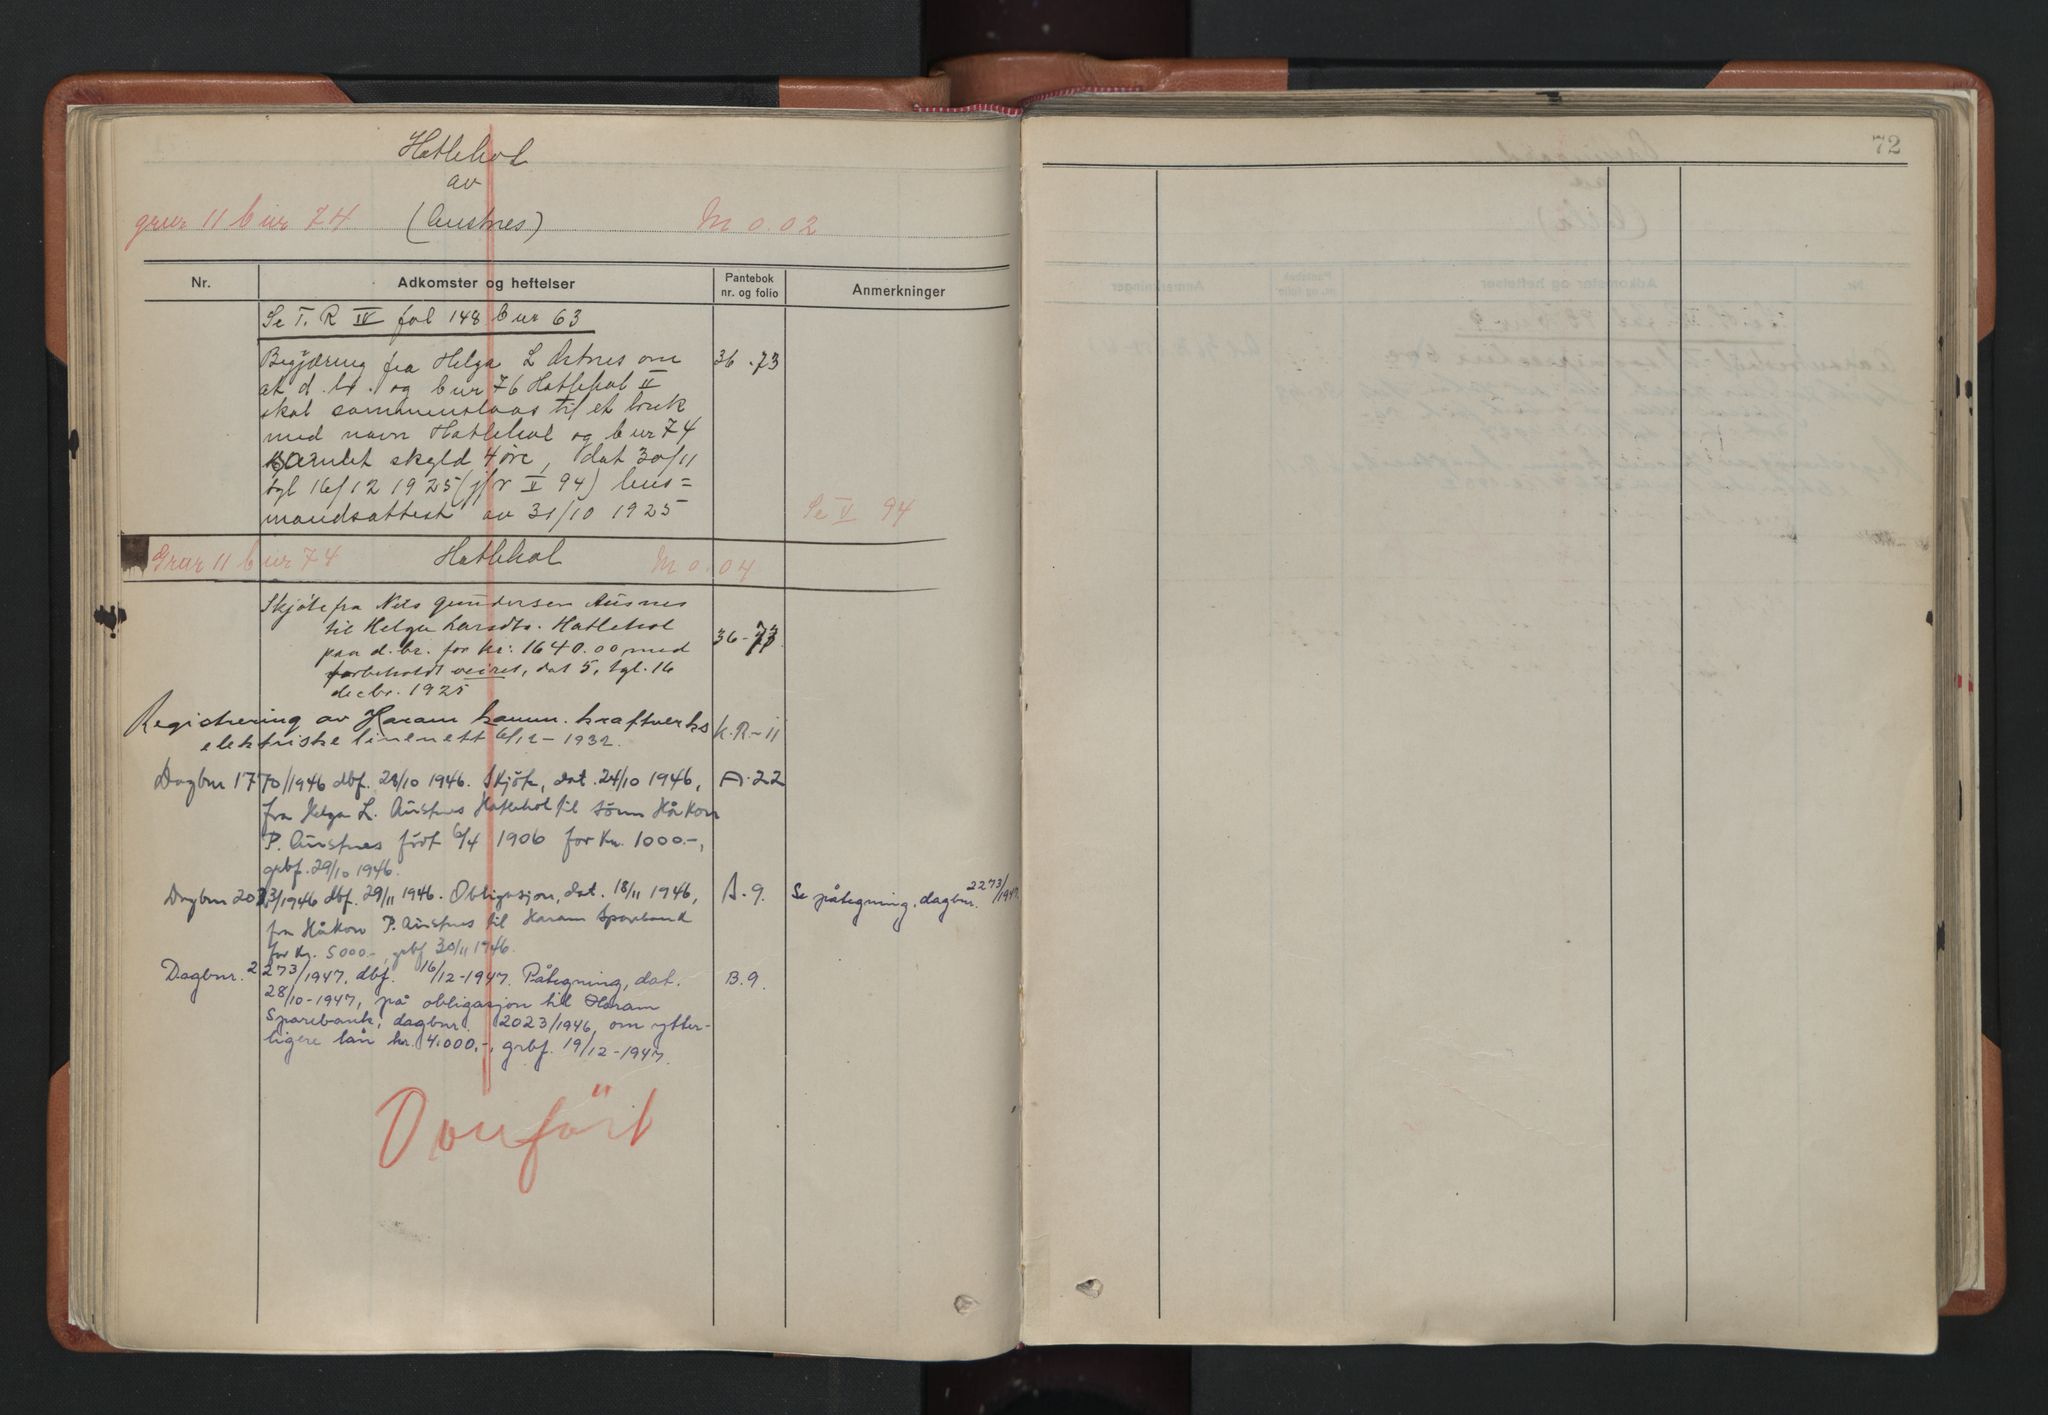 Hatlehol
av
gnr 11 b nr 74. (Austnes) M 0.02
Nr. Adkomster og heftelser Pantebok nr. og folio Anmerkninger
Se T. R IV fol 148 b nr 63
Begjæring fra Helga L Astnes om 36 - 73
at d. br. og b nr 76 Hatlehol II
skal sammenslaas til et bruk
med navn Hatlehol og b nr 74
samlet skyld 4 öre, dat 30/11
tgl 16/12 1925 (jfr V 94)
mandsattest av 31/10 1925 Se V 94
Gnr 11 b nr 74 Hatlehol M 0.04
Skjöte fra Nils Gundersen Ausnes
til Helga Larsdtr. Hatlehol
paa d. br. for kr: 1640.00 med 36 - 77
forbeholdt, dat 5, tgl. 16
decbr. 1925
Registrering av Haram komm. kraftverks K.R - 11
elektriske linenett 6/12 - 1932.
Dagbnr 1770/1946 dbf. 28/10 1946. Skjöte, dat. 24/10 1946, A. 22
fra Helga L. Austnes Hatlehol til sönn Håkon
P. Austnes född 6/4 1906 for kr. 1000.-,
grbf. 29/10 1946.
Dagbnr 2023/1946 dbf. 29/11 1946. Obligasjon, dat. 18/11 1946, B. 9. Se påtegning, dagbnr. 2273/1947.
fra Håkon P. Austnes til Haram Sparebank
for kr. 5000.-, grbf 30/11 1946.
Dagbnr. 2273/1947, dbf. 16/12-1947. Påtegning, dat. B. 9.
28/10-1947, på obligasjon til Haram
Sparebank, dagbnr. 2023/1946, om ytter-
ligere lån kr. 4.000,-, grbf. 19/12-1947.
Overfört
72